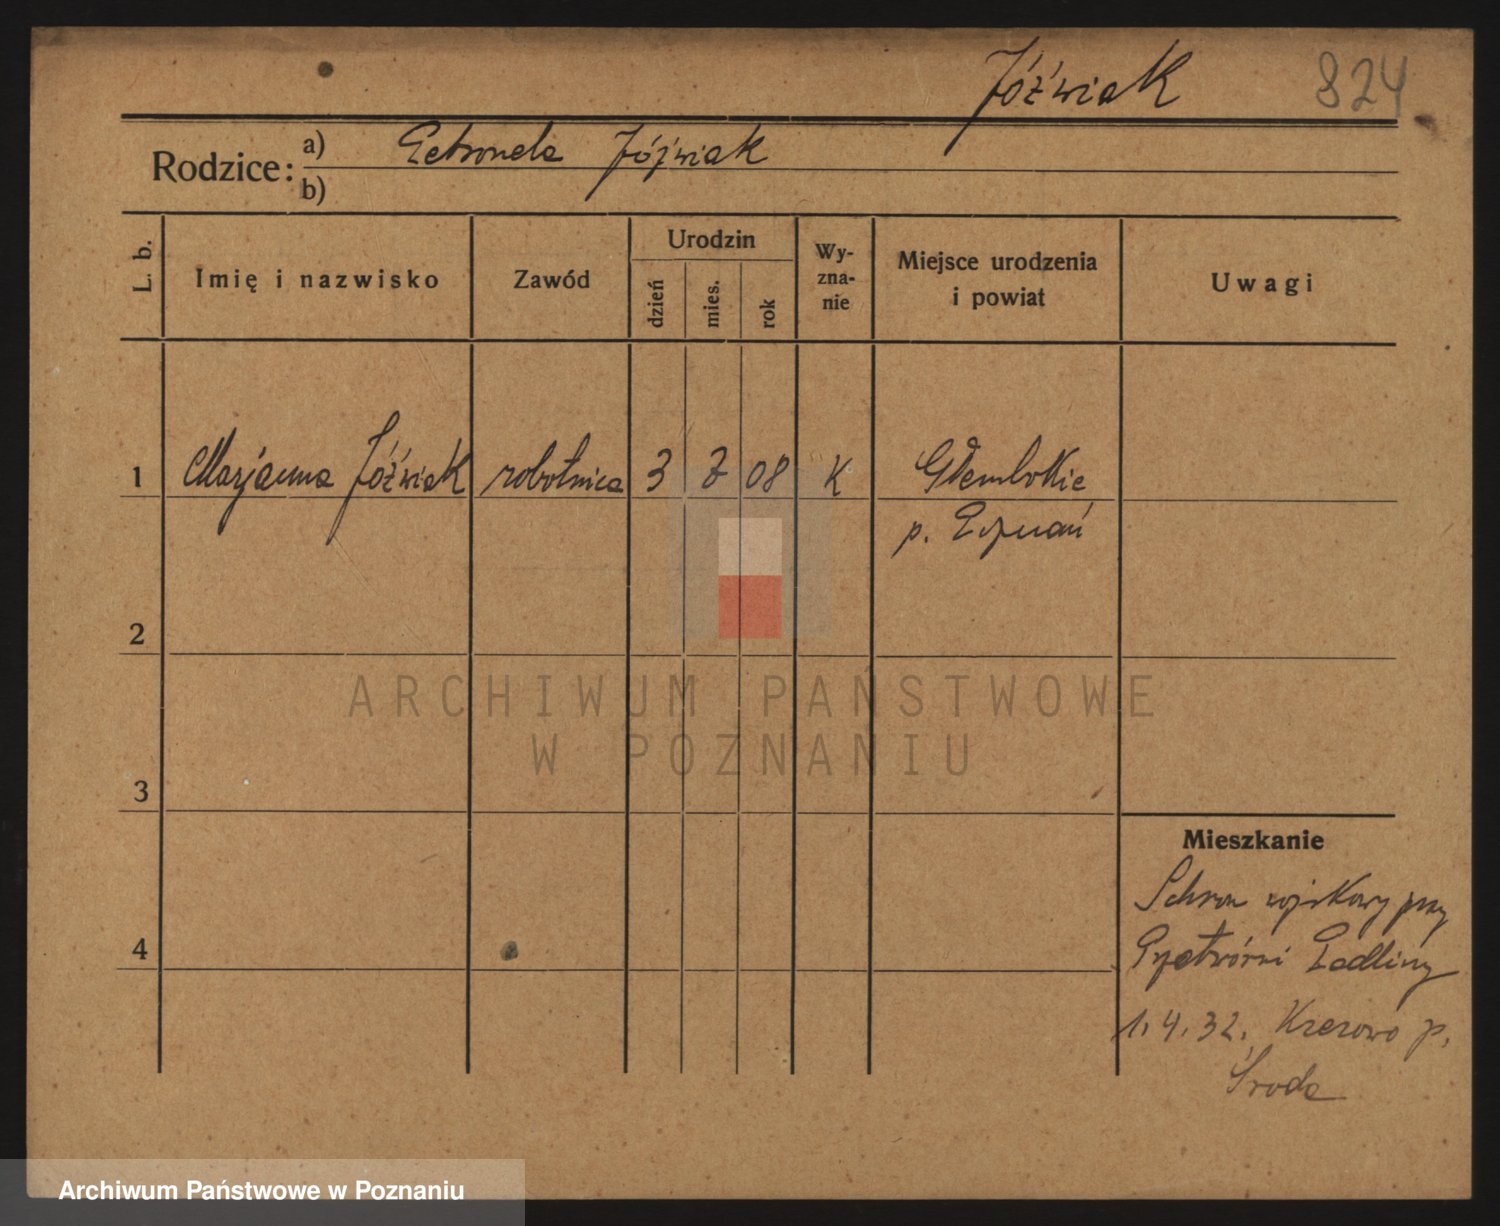 Jóźwiak 824
Rodzice: a) Petronela Jóźwiak
b)
L. b. Imię i nazwisko Zawód Urodzin dzień mies. rok Wy-
zna-
nie Miejsce urodzenia
i powiat Uwagi
1 Marjanna Jóźwiak robotnica 3 2 08 K Głembokie
p. Poznań
2
ARCHIWUM PAŃSTWOWE
W POZNANIU
3
Mieszkanie
Schron przy
4
1.4.32. p.
Środa
Archiwum Państwowe w Poznaniu